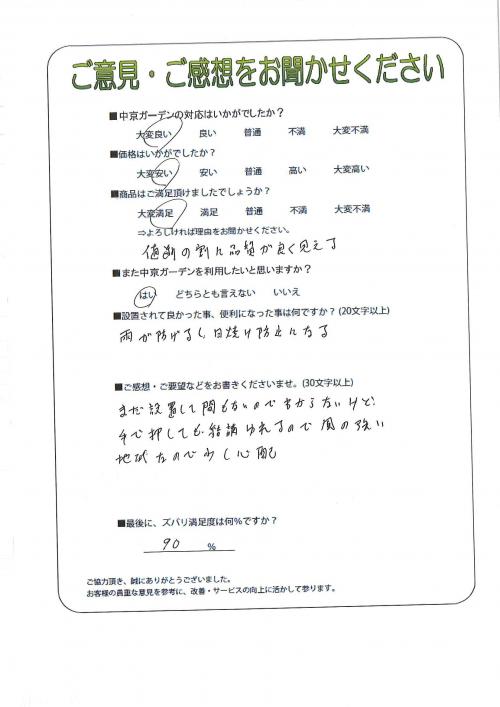 ご意見・ご感想をお聞かせください
■中京ガーデンの対応はいかがでしたか？
大変良い 良い 普通 不満 大変不満
■価格はいかがでしたか？
大変安い 安い 普通 高い 大変高い
■商品はご満足頂けましたでしょうか？
大変満足 満足 普通 不満 大変不満
⇒よろしければ理由をお聞かせください。
値段の割に品質が良く見える
■また中京ガーデンを利用したいと思いますか？
はい どちらとも言えない いいえ
■設置されて良かった事、便利になった事は何ですか？(20文字以上)
雨が防げるし、日焼け防止になる
■ご感想・ご要望などをお書きくださいませ。(30文字以上)
まだ設置して間もないので分からないけど、
手で押しても結構ゆれるので風の強い
地域なので少し心配
■最後に、ズバリ満足度は何％ですか？
90 ％
ご協力頂き、誠にありがとうございました。
お客様の貴重な意見を参考に、改善・サービスの向上に活かして参ります。